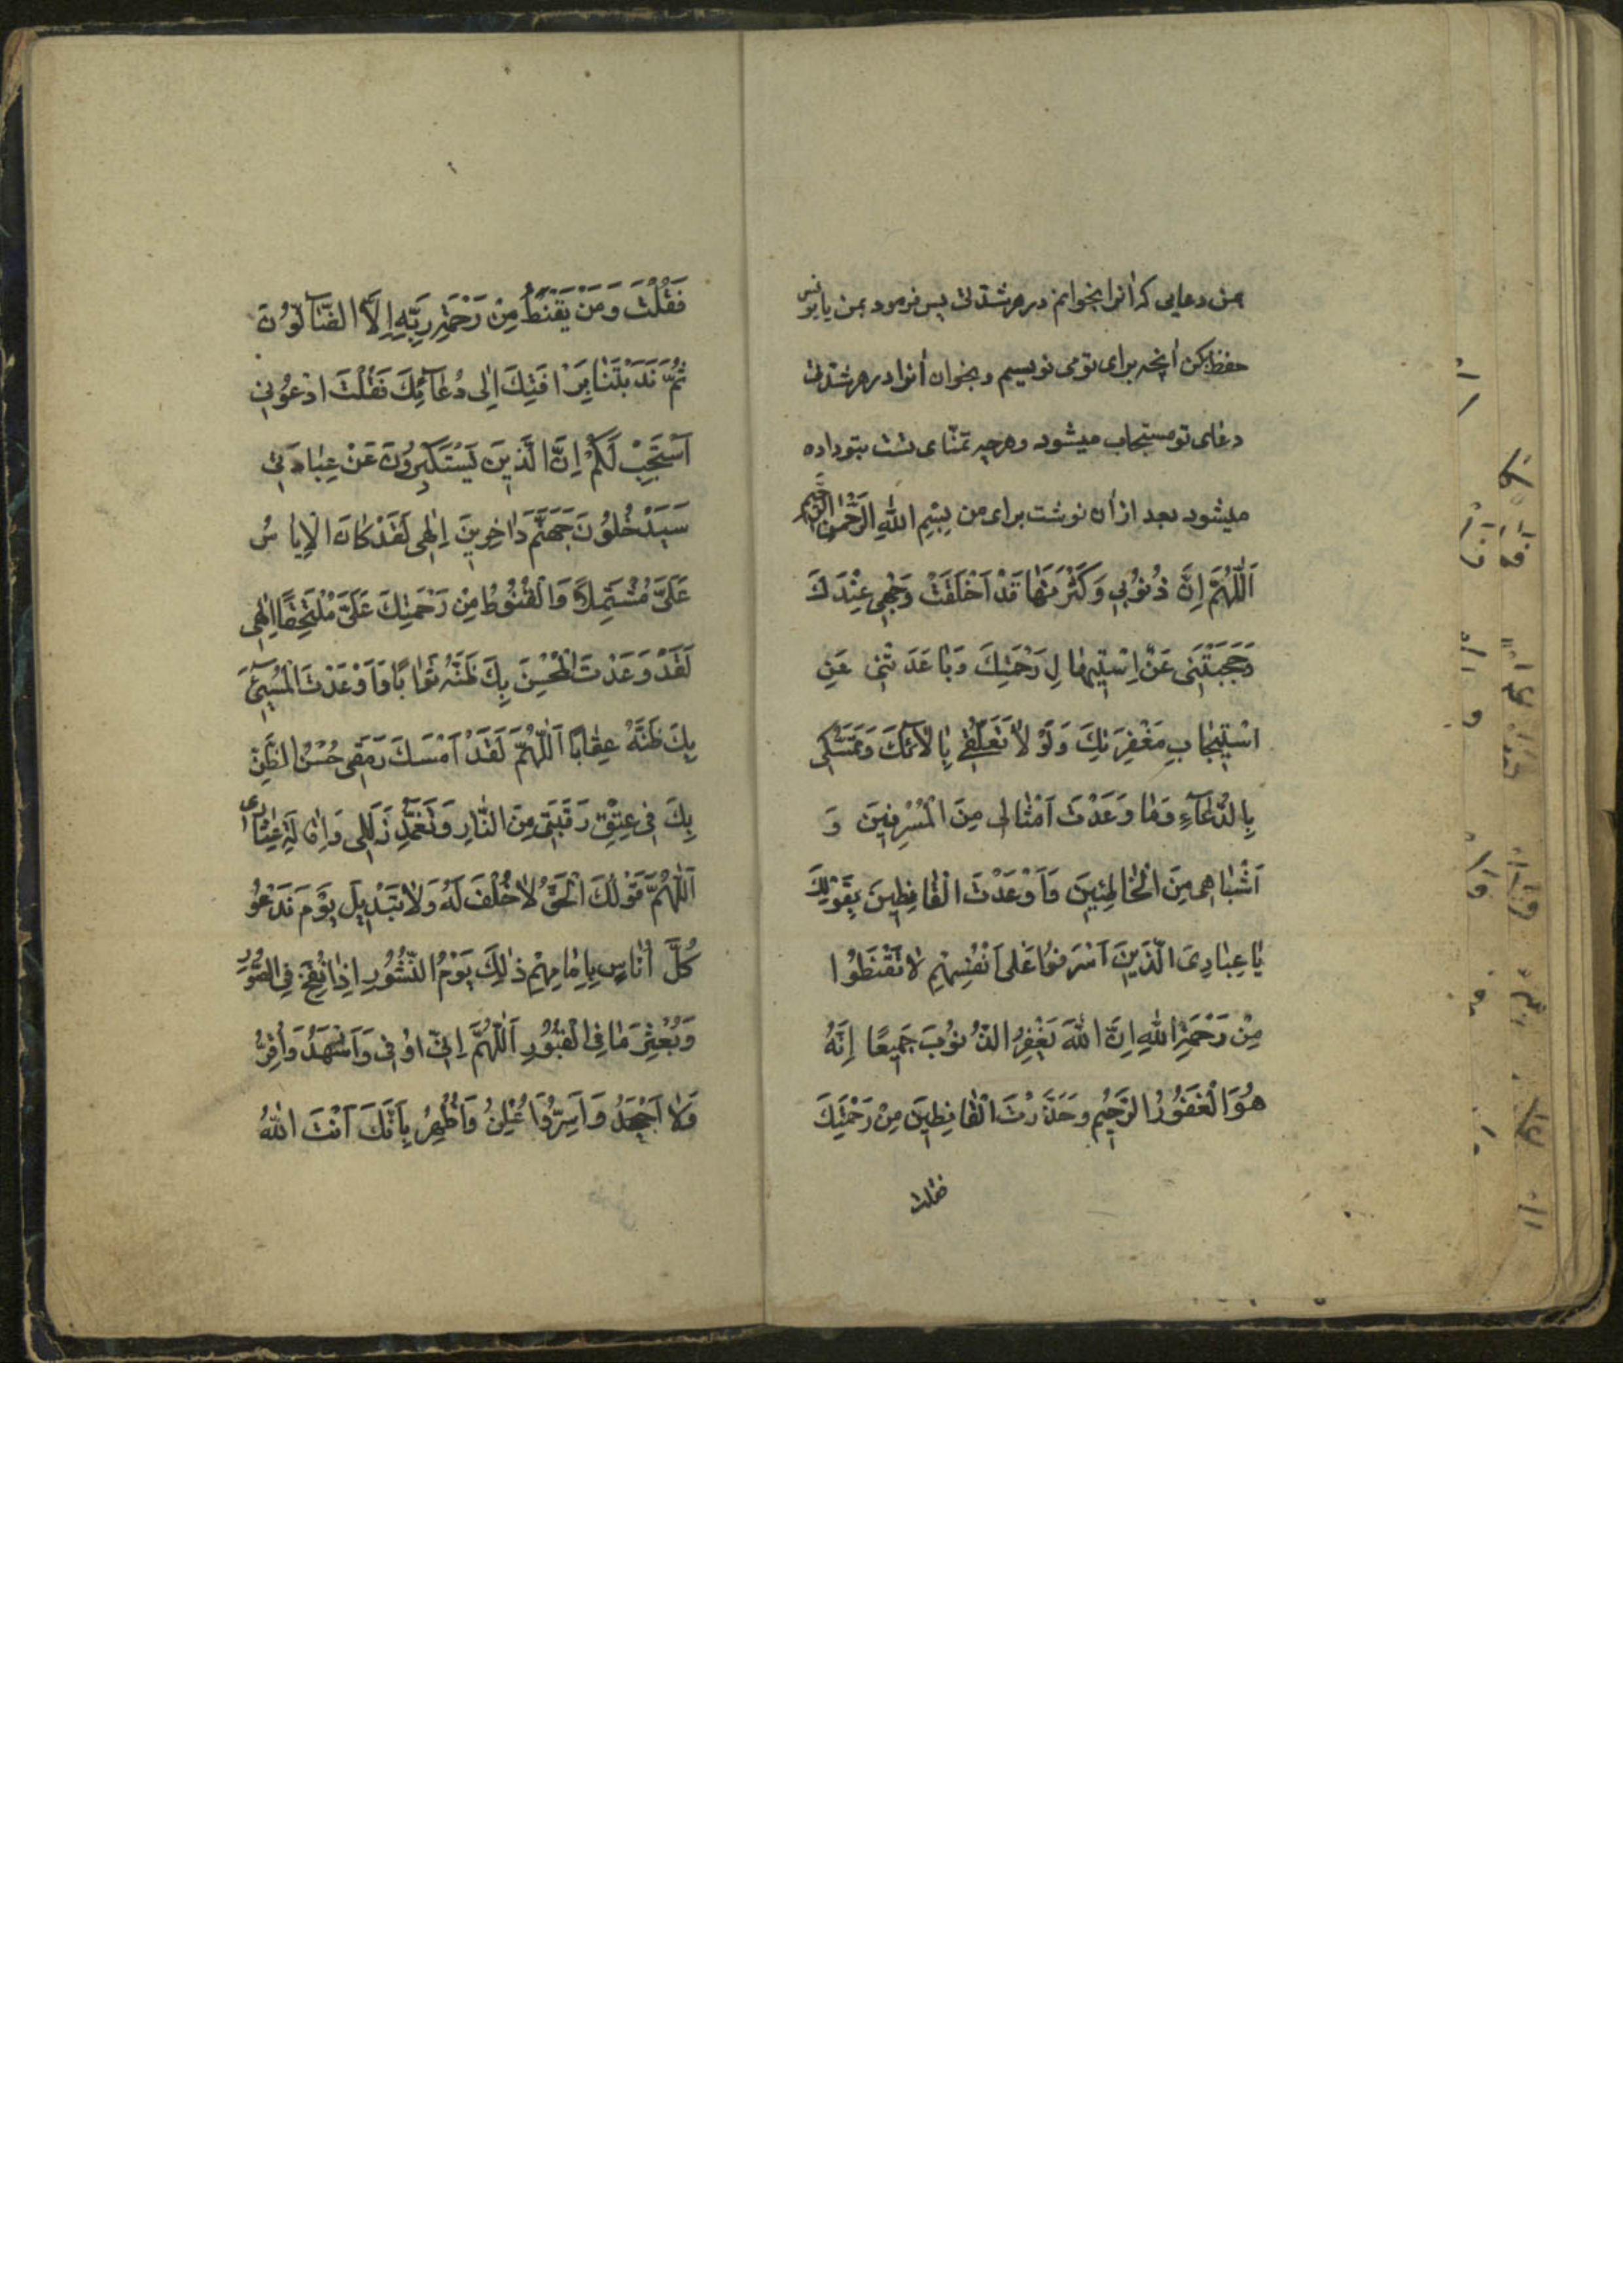 من دعایی که انرا بخوانم در هر شدتی پس فرمود بمن یا یونس
حفظ کن انچه برای تو می نویسم و بخوان أنرا در هر شدتی
دعای تو مستجاب میشود و هر چیر تمنّای تست بتو داده
میشود بعد از أن نوشت برای من بِسْمِ اللهِ الرَّحْمٰنِ الرَّحیمِ
اَللّٰهُمَّ اِنَّ ذُنُوُبی وَكَثْرَتَهٰا قَدْ اَخْلَقَتْ وَجْهی عِنْدَكَ
وَحَجَبَتْنَی عَنْ اِسْتیهٰالِ رَحْمَتِكَ وَبٰاعَدَتْنی عَنِ
اسْتیجٰابِ مَغْفِرَتِكَ وَلَوْ لاٰ تَعَلُّقی بِالاٰئكَ وَتَمَسُّكی
بِالدُّعٰآءِ وَمٰا وَعَدْتَ اَمْثٰالی مِنَ الْمُسْرِفینَ وَ
اَشْبٰاهی مِنَ الْخٰاطِئینَ وَاَوْعَدْتَ الْقٰانِطینَ بِقَوْلِكَ
یٰا عِبٰادِیَ الَّذینَ اَسْرَفوُا عَلٰی اَنْفُسِهِمْ لاٰ تَقْنَطُوْا
مِنْ رَحْمَةِ اللهِ اِنَّ اللهَ یَغْفِرُ الذُّنوُبَ جَمیعًا اِنَّهُ
هُوَ الْغَفوُرُ الرَّحیُم وحَذَّرْتَ الْقٰانِطینَ مِنْ رَحْمَتِكَ
فقلت
فَقُلْتَ وَمَنْ یَقْنَطُ مِنْ رَحْمَةِ رَبِّهِ اِلاَّ الضّٰآلّوُنَ
ثُمَّ نَدَبْتَنٰا بِرَاْفَتِكَ اِلٰی دُعٰآئِكَ فَقُلْتَ ادْعوُنی
اَسْتَجِبْ لَكُمْ اِنَّ الَّذینَ یَسْتَكْبِروُنَ عَنْ عِبٰادَتی
سَیَدْخُلوُنَ جَهَنَّمَ دٰاخِرینَ اِلٰهی لَقَدْ كٰانَ الْاِیٰاسُ
عَلَیَّ مُشْتَمِلاً وَالْقُنوُطُ مِنْ رَحْمَتِكَ عَلَیَّ مُلْتَحِفًا اِلٰهی
لَقَدْ وَعَدْتَ الْمُحْسِنَ بِكَ ظَنَّهُ ثَوٰابًا وَاَوْعَدْتَ الْمُسیَٓئَ
بِكَ ظَنَّهُ عِقٰابًا اَللّٰهُمَّ لَقَدْ اَمْسَكَ رَمَقی حُسْنُ الظَّنِ
بِكَ فی عِتْقِ رَقَبَتی مِنَ النّٰارِ وَتَغَمُّدِ زَلَلی وَاِقٰالَةِ عِثٰاری
اَللّٰهُمَّ قَوْلُكَ الْحَقُّ لاٰ خُلْفَ لَهُ وَلاٰ تَبْدیلَ یَوْمَ نَدْعوُ
كُلَّ اُنٰاسٍ بِاِمٰامِهِمْ ذٰلِكَ یَوْمُ النُّشُورِ اِذٰا نُفِخَ فِی الصُّورِ
وَبُعْثِرَ مٰا فِی الْقبُوُرِ اَللّٰهُمَّ اِنّی اوُفی وَاَشْهَدُ وَاُقِرُّ
وَلاٰ اَجْحَدُ وَاُسِرُّ وَاُعْلِنُ وَاُظْهِرُ بِاَنَّكَ اَنْتَ اللهُ